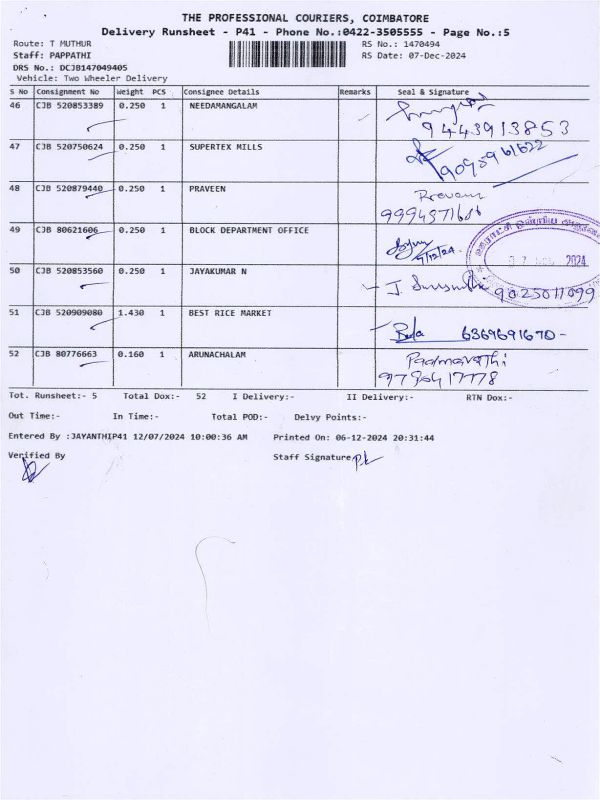 THE PROFESSIONAL COURIERS, COIMBATORE
Delivery Runsheet - P41 - Phone No.:0422-3505555 - Page No.:5
Route: T MUTHUR RS No.: 1470494
Staff: PAPPATHI RS Date: 07-Dec-2024
DRS No.: DCJB147049405
Vehicle: Two Wheeler Delivery
S No Consignment No Weight PCS Consignee Details Remarks Seal & Signature
46 CJB 520853389 0.250 1 NEEDAMANGALAM
9443913853
47 CJB 520750624 0.250 1 SUPERTEX MILLS
48 CJB 520879440 0.250 1 PRAVEEN
49 CJB 80621606 0.250 1 BLOCK DEPARTMENT OFFICE
7/12/24
2024
50 CJB 520853560 0.250 1 JAYAKUMAR N
9025011099
51 CJB 520909080 1.430 1 BEST RICE MARKET
6369691670-
52 CJB 80776663 0.160 1 ARUNACHALAM Padmavathi
Tot. Runsheet:- 5 Total Dox:- 52 I Delivery:- II Delivery:- RTN Dox:-
Out Time:- In Time:- Total POD:- Delvy Points:-
Entered By :JAYANTHIP41 12/07/2024 10:00:36 AM Printed On: 06-12-2024 20:31:44
Verified By Staff Signature